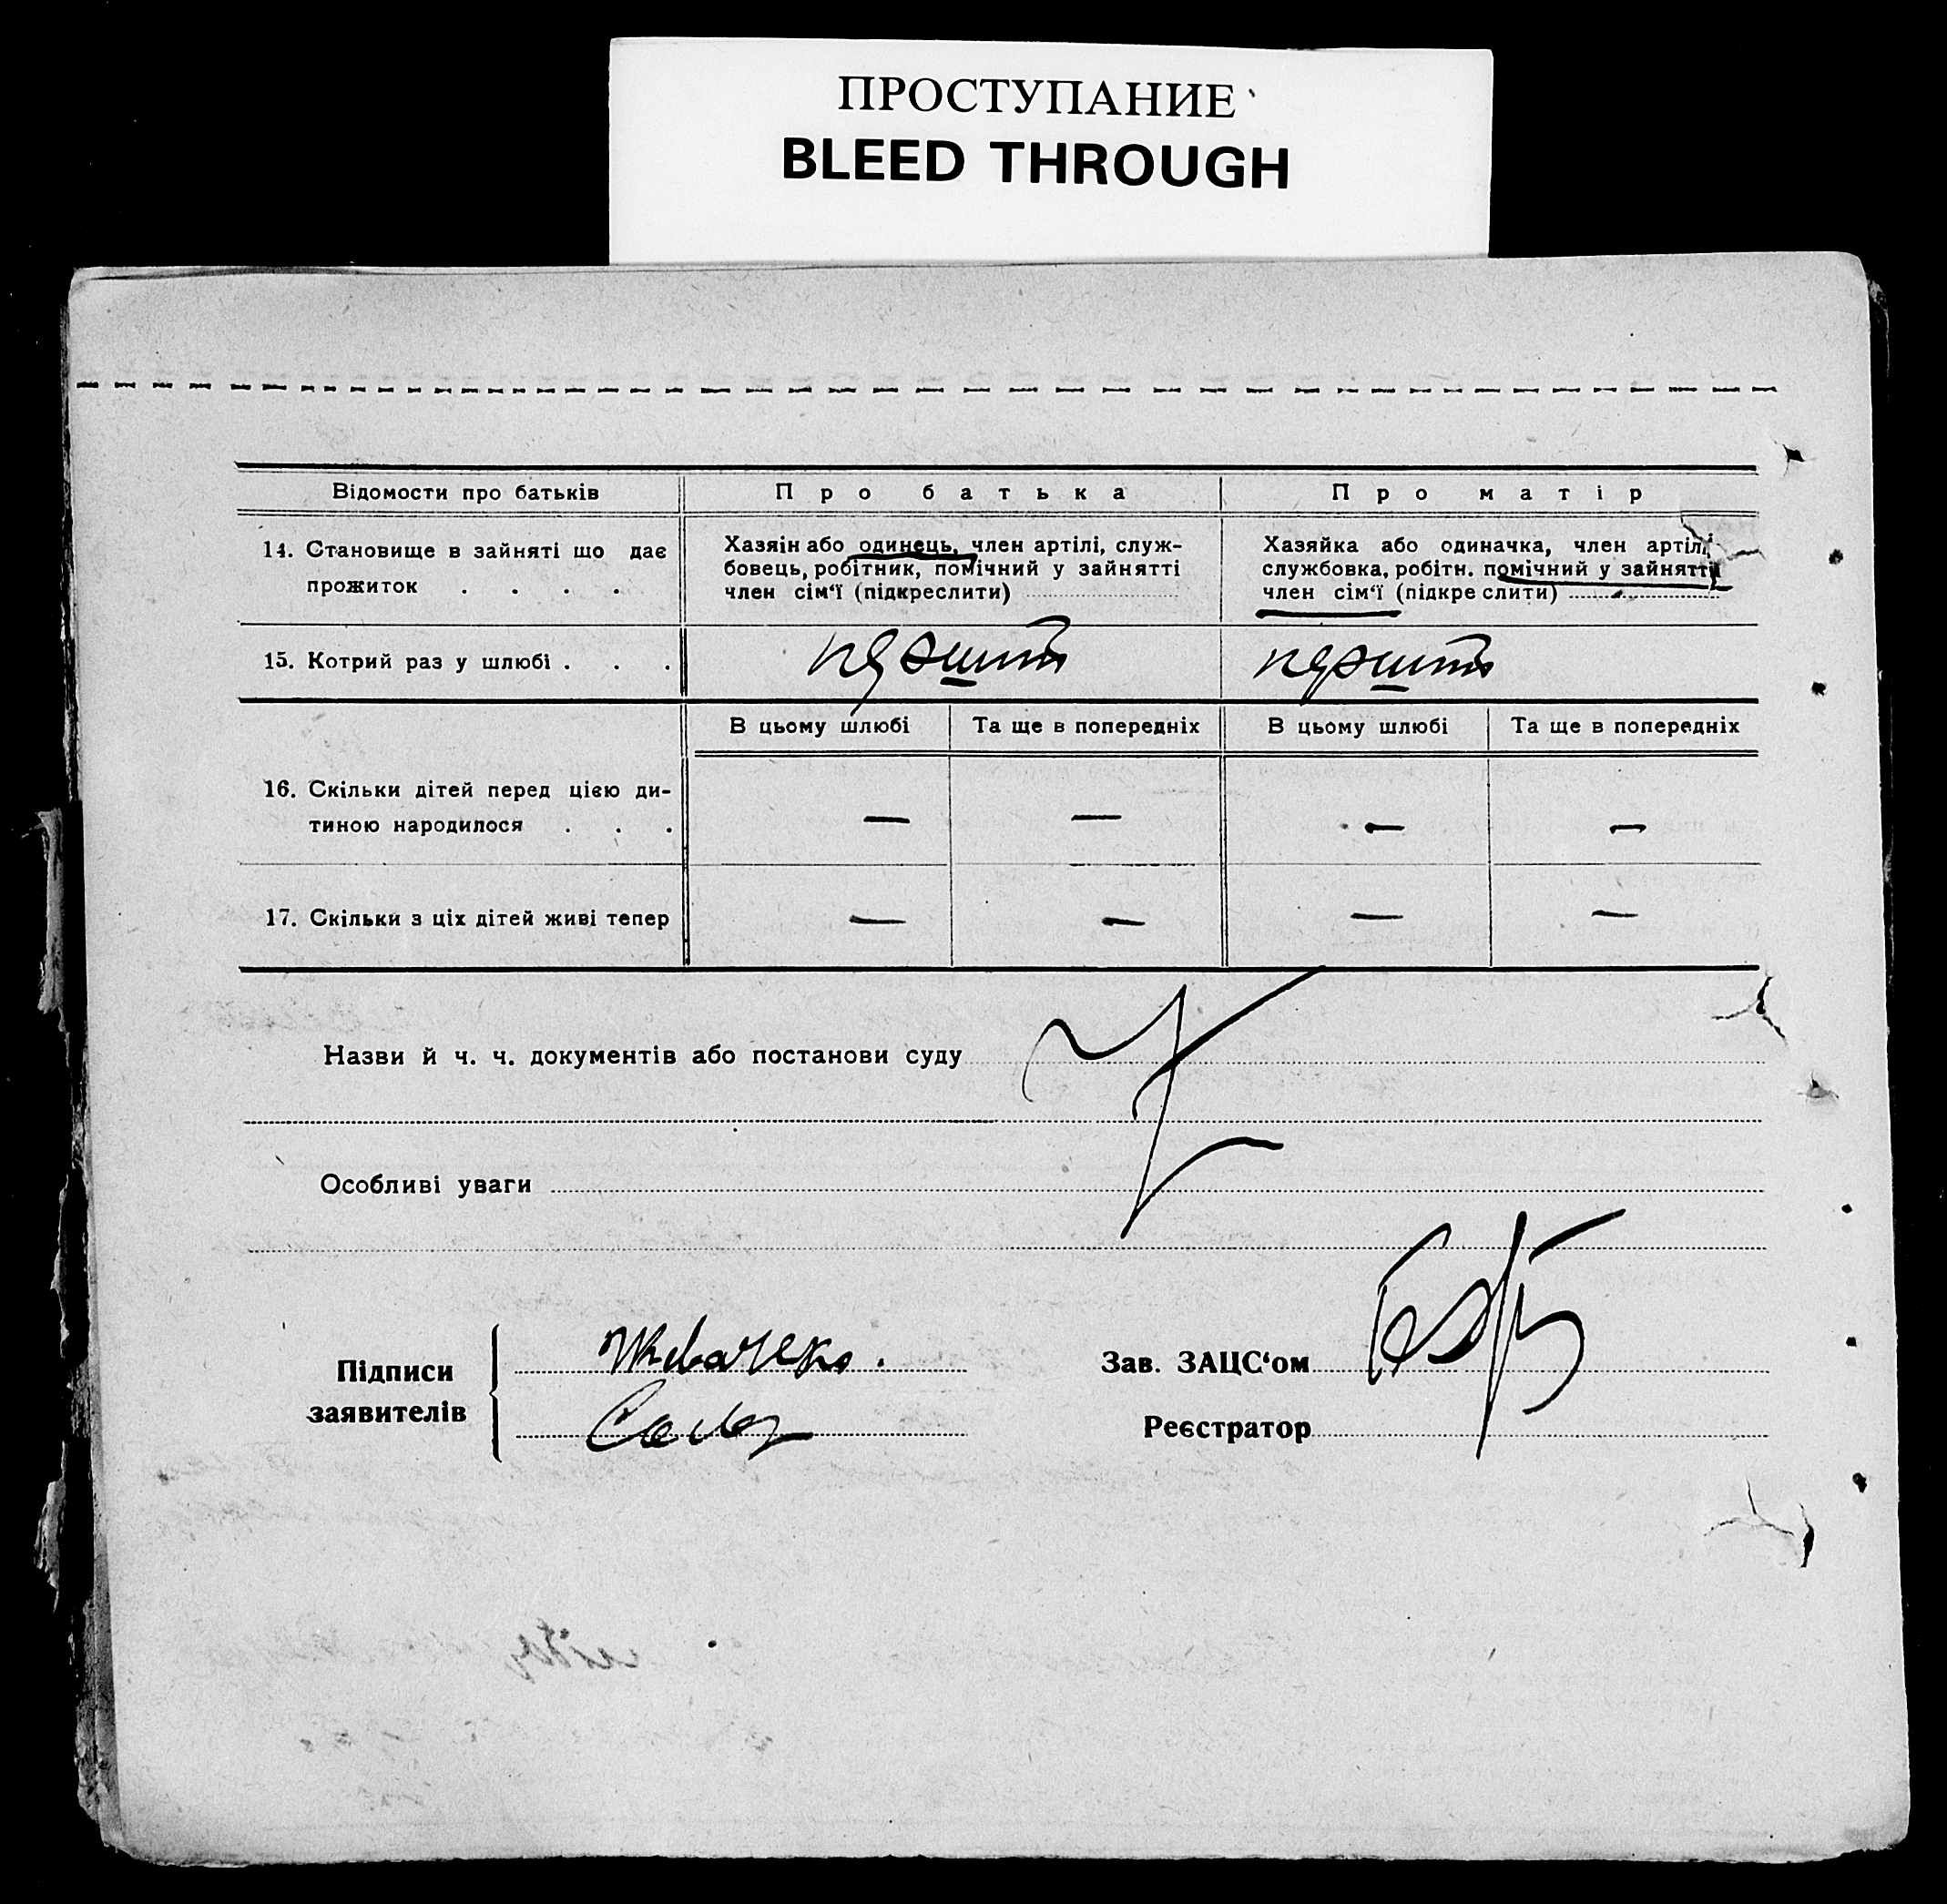 ПРОСТУПАНИЕ
BLEED THROUGH
Відомости про батьків
Про батька
Про матір
14. Становище в зайняті що дає
прожиток . . . .
Хазяїн або одинець, член артілі, служ-
бовець, робітник, помічний у зайнятті
член сім'ї (підкреслити)
Хазяйка або одиначка, член артілі
службовка, робітн. помічний у зайнятті
член сім'ї (підкреслити)
15. Котрий раз у шлюбі . . .
В цьому шлюбі
Та ще в попередніх
В цьому шлюбі
Та ще в попередніх
16. Скільки дітей перед цією ди-
тиною народилося . . .
— — — —
17. Скільки з ціх дітей живі тепер
— — — —
Назви й ч. ч. документів або постанови суду
Особливі уваги
Підписи
заявителів
Зав. ЗАЦС'ом
Реєстратор